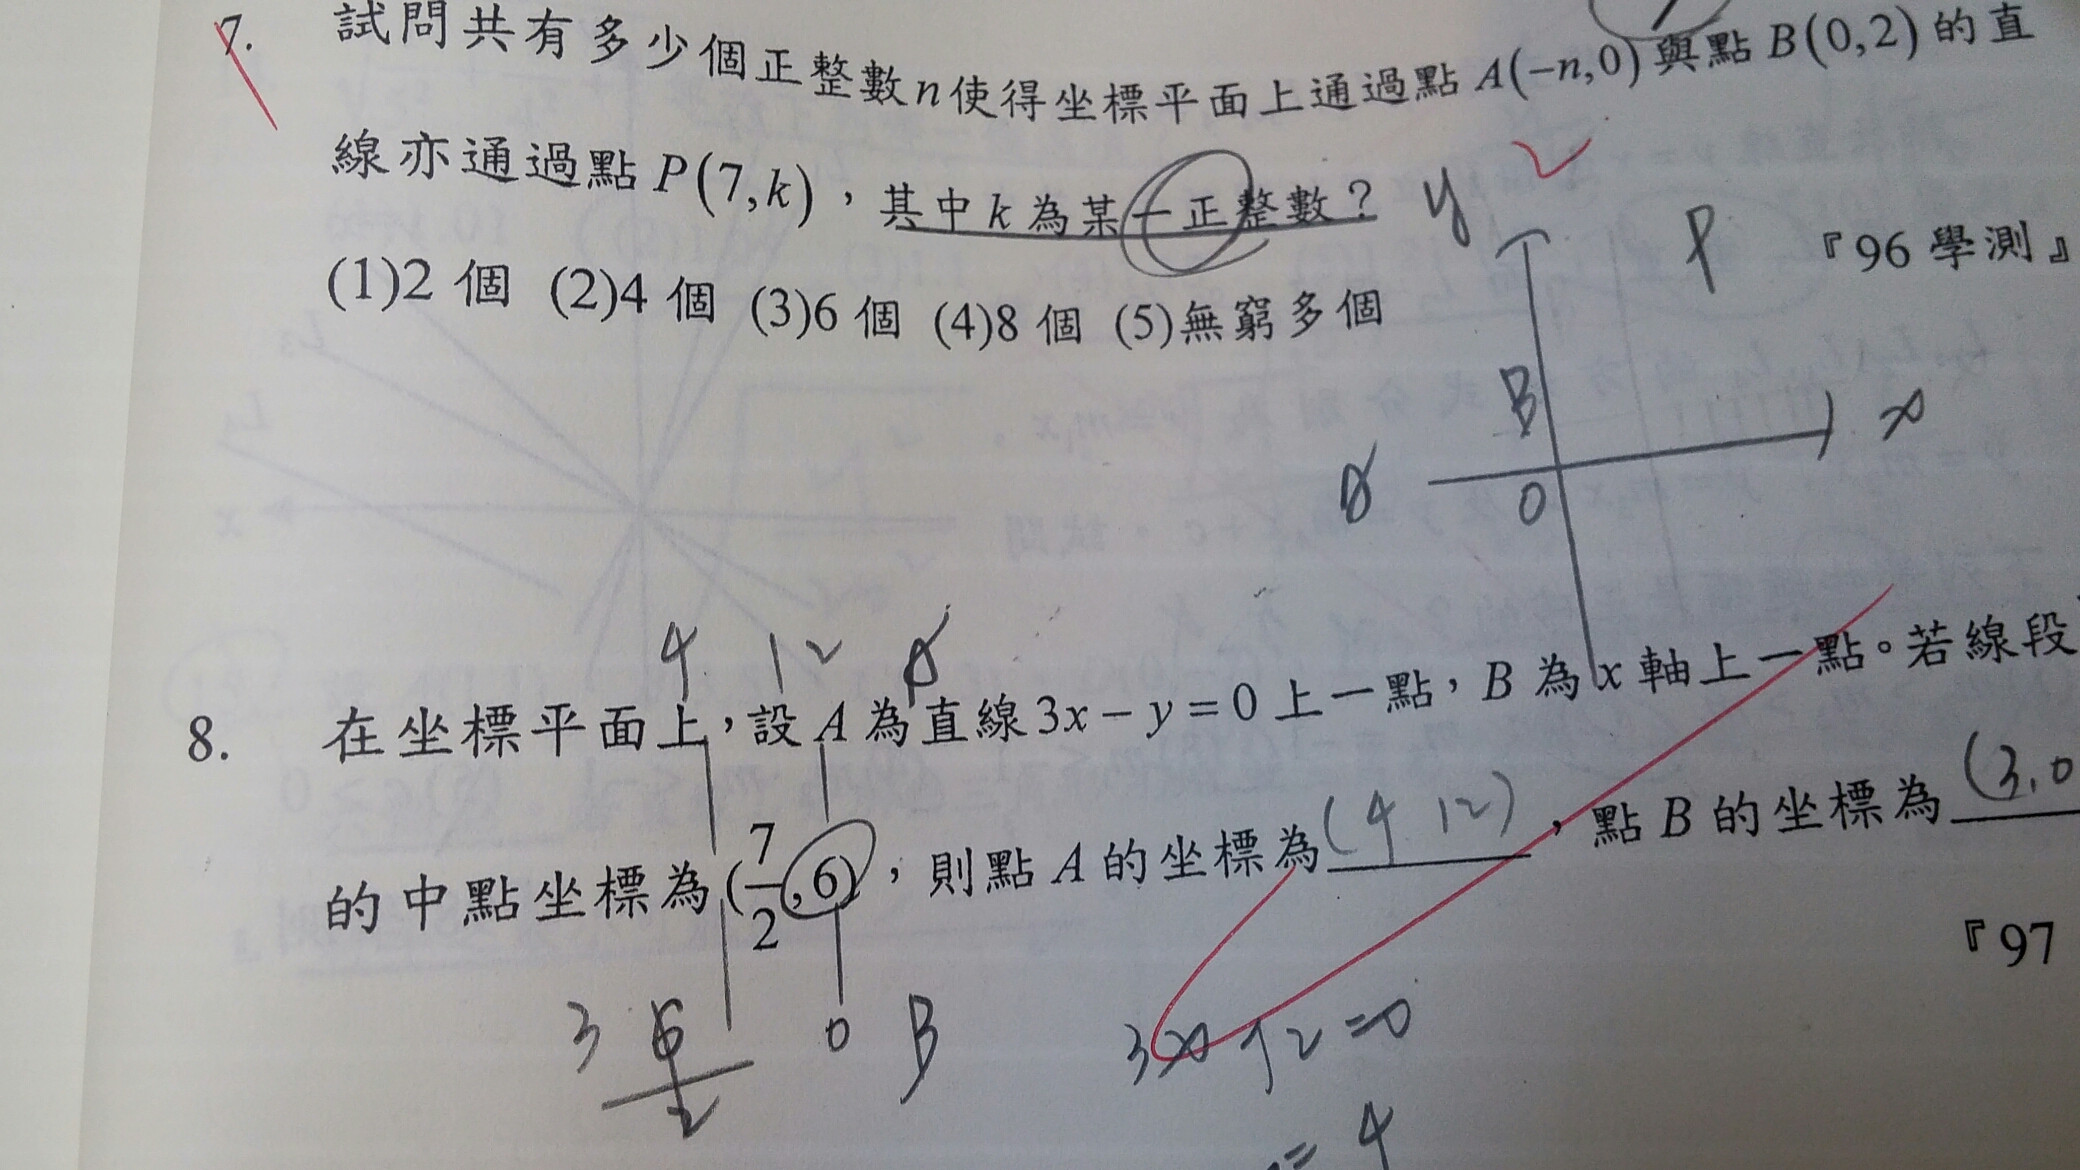 7. 試問共有多少個正整數n使得坐標平面上通過點A(−n,0)與點B(0,2)的直
線亦通過點P(7,k)，其中k為某一正整數？
y P 『96 學測』
(1)2 個 (2)4 個 (3)6 個 (4)8 個 (5)無窮多個
B x
O
4 12 A
8. 在坐標平面上，設A為直線3x−y=0上一點，B為x軸上一點。若線段
的中點坐標為(7/2,6)，則點A的坐標為(4 12)，點B的坐標為(3,0
『97
3 0 B 3x 12=0
= 4